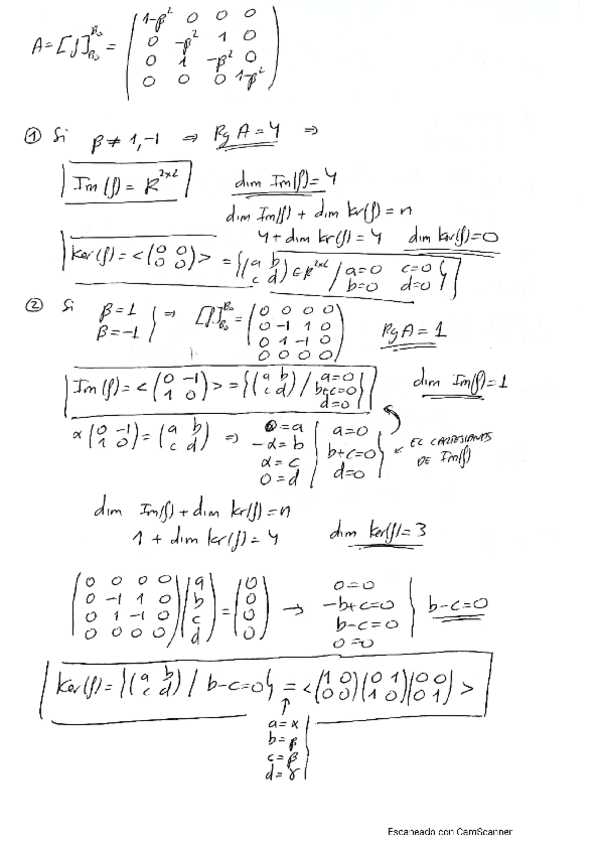 A = [f]^{B₀}_{B₀} = \begin{pmatrix} 1-β² & 0 & 0 & 0 \\ 0 & -β² & 1 & 0 \\ 0 & 1 & -β² & 0 \\ 0 & 0 & 0 & 1-β² \end{pmatrix}
① Si β ≠ 1, -1 ⇒ Rg A = 4 ⇒
Im(f) = R^{2×2} dim Im(f) = 4
dim Im(f) + dim Ker(f) = n
4 + dim Ker(f) = 4 dim Ker(f) = 0
Ker(f) = < \begin{pmatrix} 0 & 0 \\ 0 & 0 \end{pmatrix} > = { \begin{pmatrix} a & b \\ c & d \end{pmatrix} ∈ R^{2×2} / a=0 c=0 b=0 d=0 }
② Si β = 1 β = -1 } ⇒ [f]^{B₀}_{B₀} = \begin{pmatrix} 0 & 0 & 0 & 0 \\ 0 & -1 & 1 & 0 \\ 0 & 1 & -1 & 0 \\ 0 & 0 & 0 & 0 \end{pmatrix} Rg A = 1
Im(f) = < \begin{pmatrix} 0 & -1 \\ 1 & 0 \end{pmatrix} > = { \begin{pmatrix} a & b \\ c & d \end{pmatrix} / a=0 b+c=0 d=0 } dim Im(f) = 1
α \begin{pmatrix} 0 & -1 \\ 1 & 0 \end{pmatrix} = \begin{pmatrix} a & b \\ c & d \end{pmatrix} ⇒ 0=a -α=b α=c 0=d | a=0 b+c=0 d=0 } ← EC CARTESIANAS DE Im(f)
dim Im(f) + dim Ker(f) = n
1 + dim Ker(f) = 4 dim Ker(f) = 3
\begin{pmatrix} 0 & 0 & 0 & 0 \\ 0 & -1 & 1 & 0 \\ 0 & 1 & -1 & 0 \\ 0 & 0 & 0 & 0 \end{pmatrix} \begin{pmatrix} a \\ b \\ c \\ d \end{pmatrix} = \begin{pmatrix} 0 \\ 0 \\ 0 \\ 0 \end{pmatrix} → 0=0 -b+c=0 b-c=0 0=0 } b-c=0
Ker(f) = { \begin{pmatrix} a & b \\ c & d \end{pmatrix} / b-c=0 } = < \begin{pmatrix} 1 & 0 \\ 0 & 0 \end{pmatrix} \begin{pmatrix} 0 & 1 \\ 1 & 0 \end{pmatrix} \begin{pmatrix} 0 & 0 \\ 0 & 1 \end{pmatrix} >
↑
a=α
b=β
c=β
d=γ
Escaneado con CamScanner